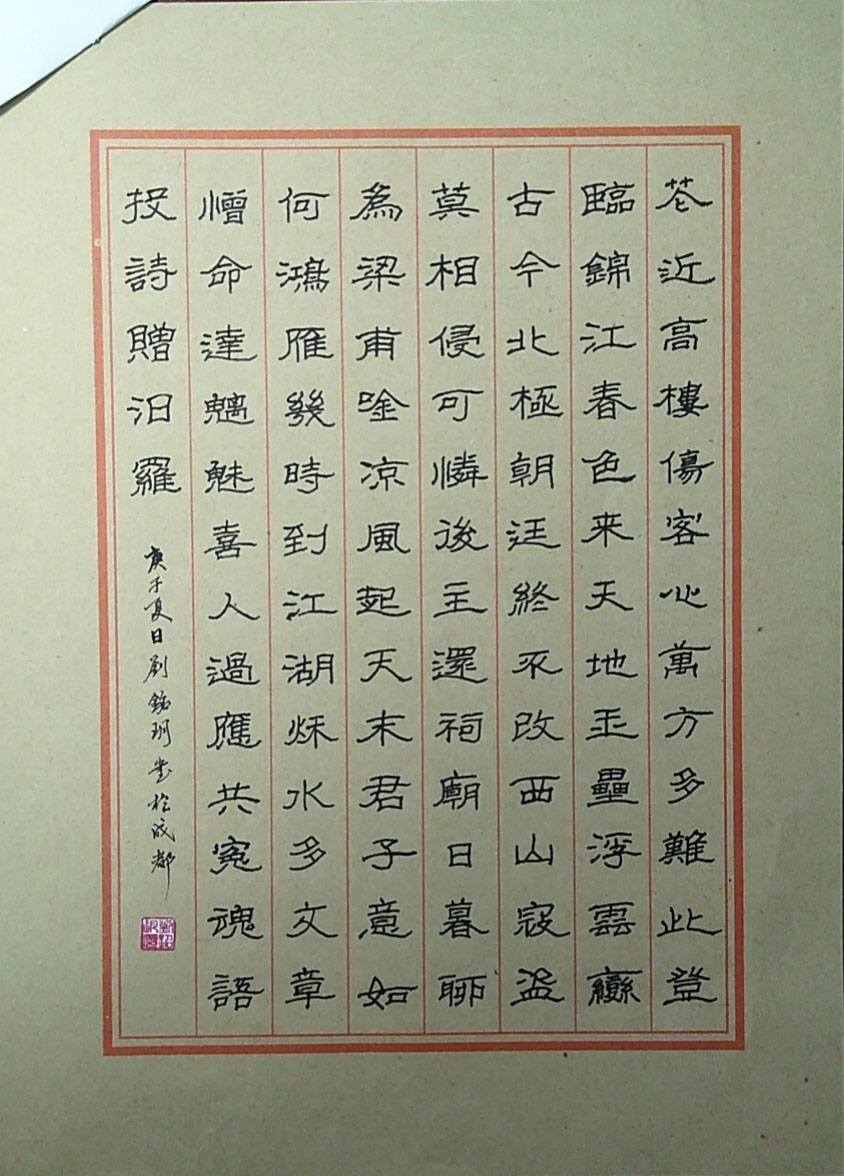 花近高樓傷客心萬方多難此登
臨錦江春色来天地玉壘浮雲變
古今北極朝廷終不改西山寇盗
莫相侵可憐後主還祠廟日暮聊
為梁甫唫凉風起天末君子意如
何鴻雁幾時到江湖秌水多文章
憎命達魑魅喜人過應共冤魂語
投詩贈汨羅
庚子夏日劉銘珂書於成都